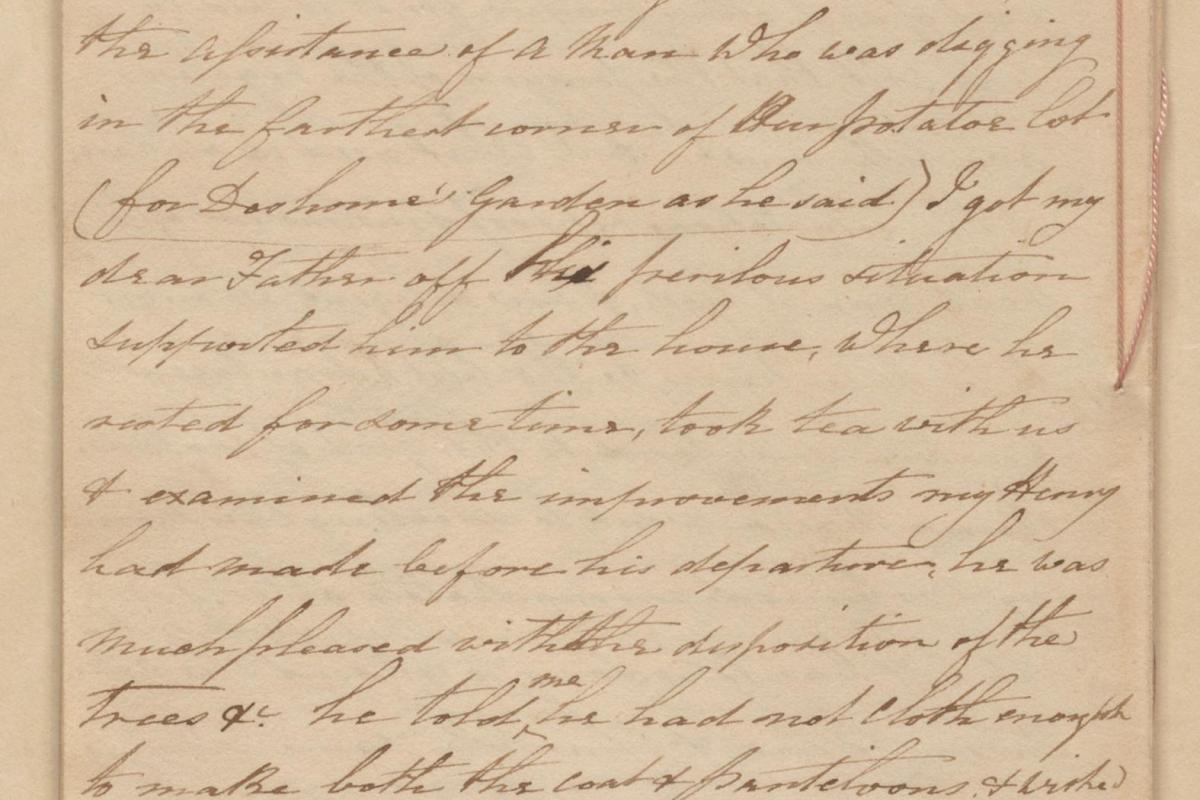 the assistance of a Man Who was digging
in the farthest corner of Our potatoe lot
(for Dashome's Garden as he said) I got my
dear Father off this perilous situation
supported him to the house, Where he
rested for some time, took tea with us
& examined the improvements my Henry
had made before his departure, he was
much pleased with the disposition of the
trees &c. he told me he had not cloth enough
to make both the coat & panteloons, & wished